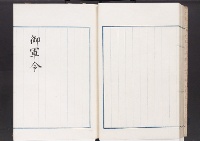 御軍令